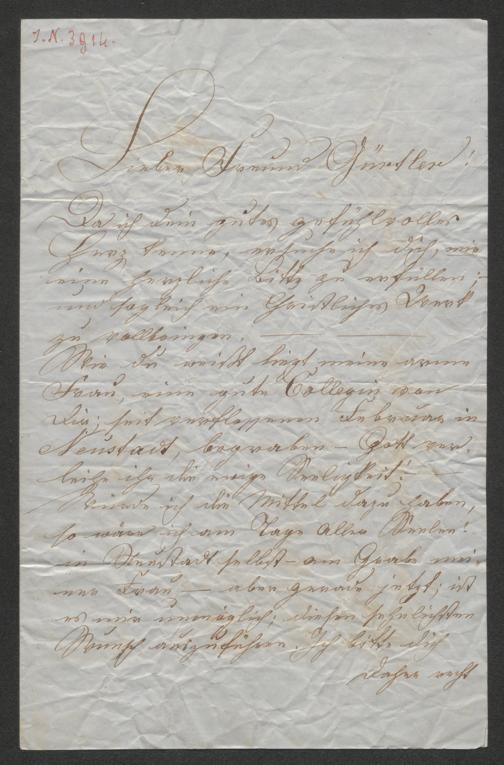 J.N. 3914.
Lieber Freund Gürtler!
Da ich dein gutes gefühlvolles
Herz kenne, ersuche ich dich, mir
eine herzliche Bitte zu erfüllen;
und sogleich ein Christliches Werk
zu vollbringen.
Wie du weißt liegt meine arme
Frau, eine gute Collegin von
Dir; seit verflossenen Februar in
Neustadt, begraben – Gott ver-
leihe ihr die ewige Seeligkeit!
Würde ich die Mittel dazu haben,
so wäre ich am Tage Aller Seelen!
in Neustadt selbst – am Grabe mei-
ner Frau – aber gerade jetzt; ist
es mir unmöglich; diesen sehnlichsten
Wunsch auszuführen. Ich bitte dich
daher recht